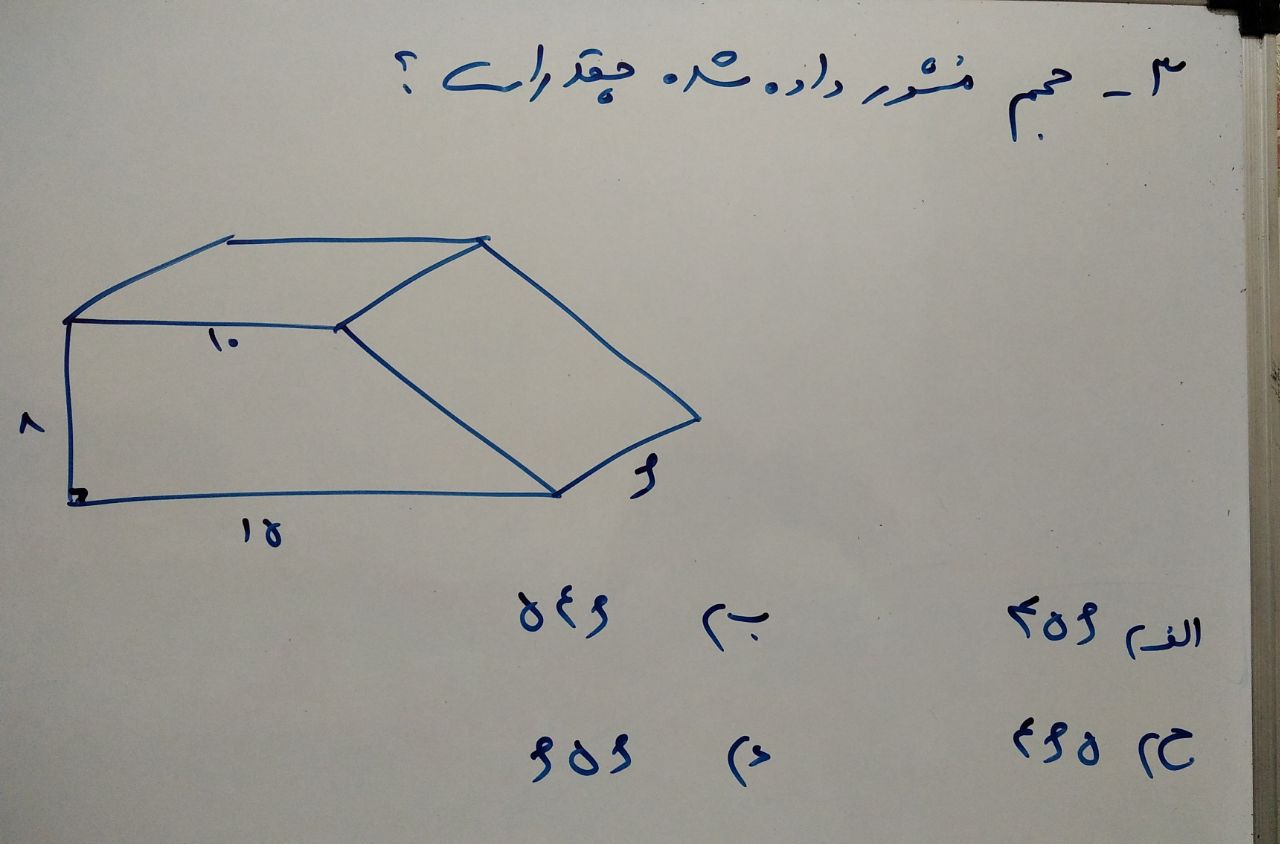 ۳ - حجم منشور داده شده چقدر است ؟
۱۰
۸
۶
۱۵
الف) ۳۵۶ ب) ۵۴۶
ج) ۴۶۵ د) ۶۵۶